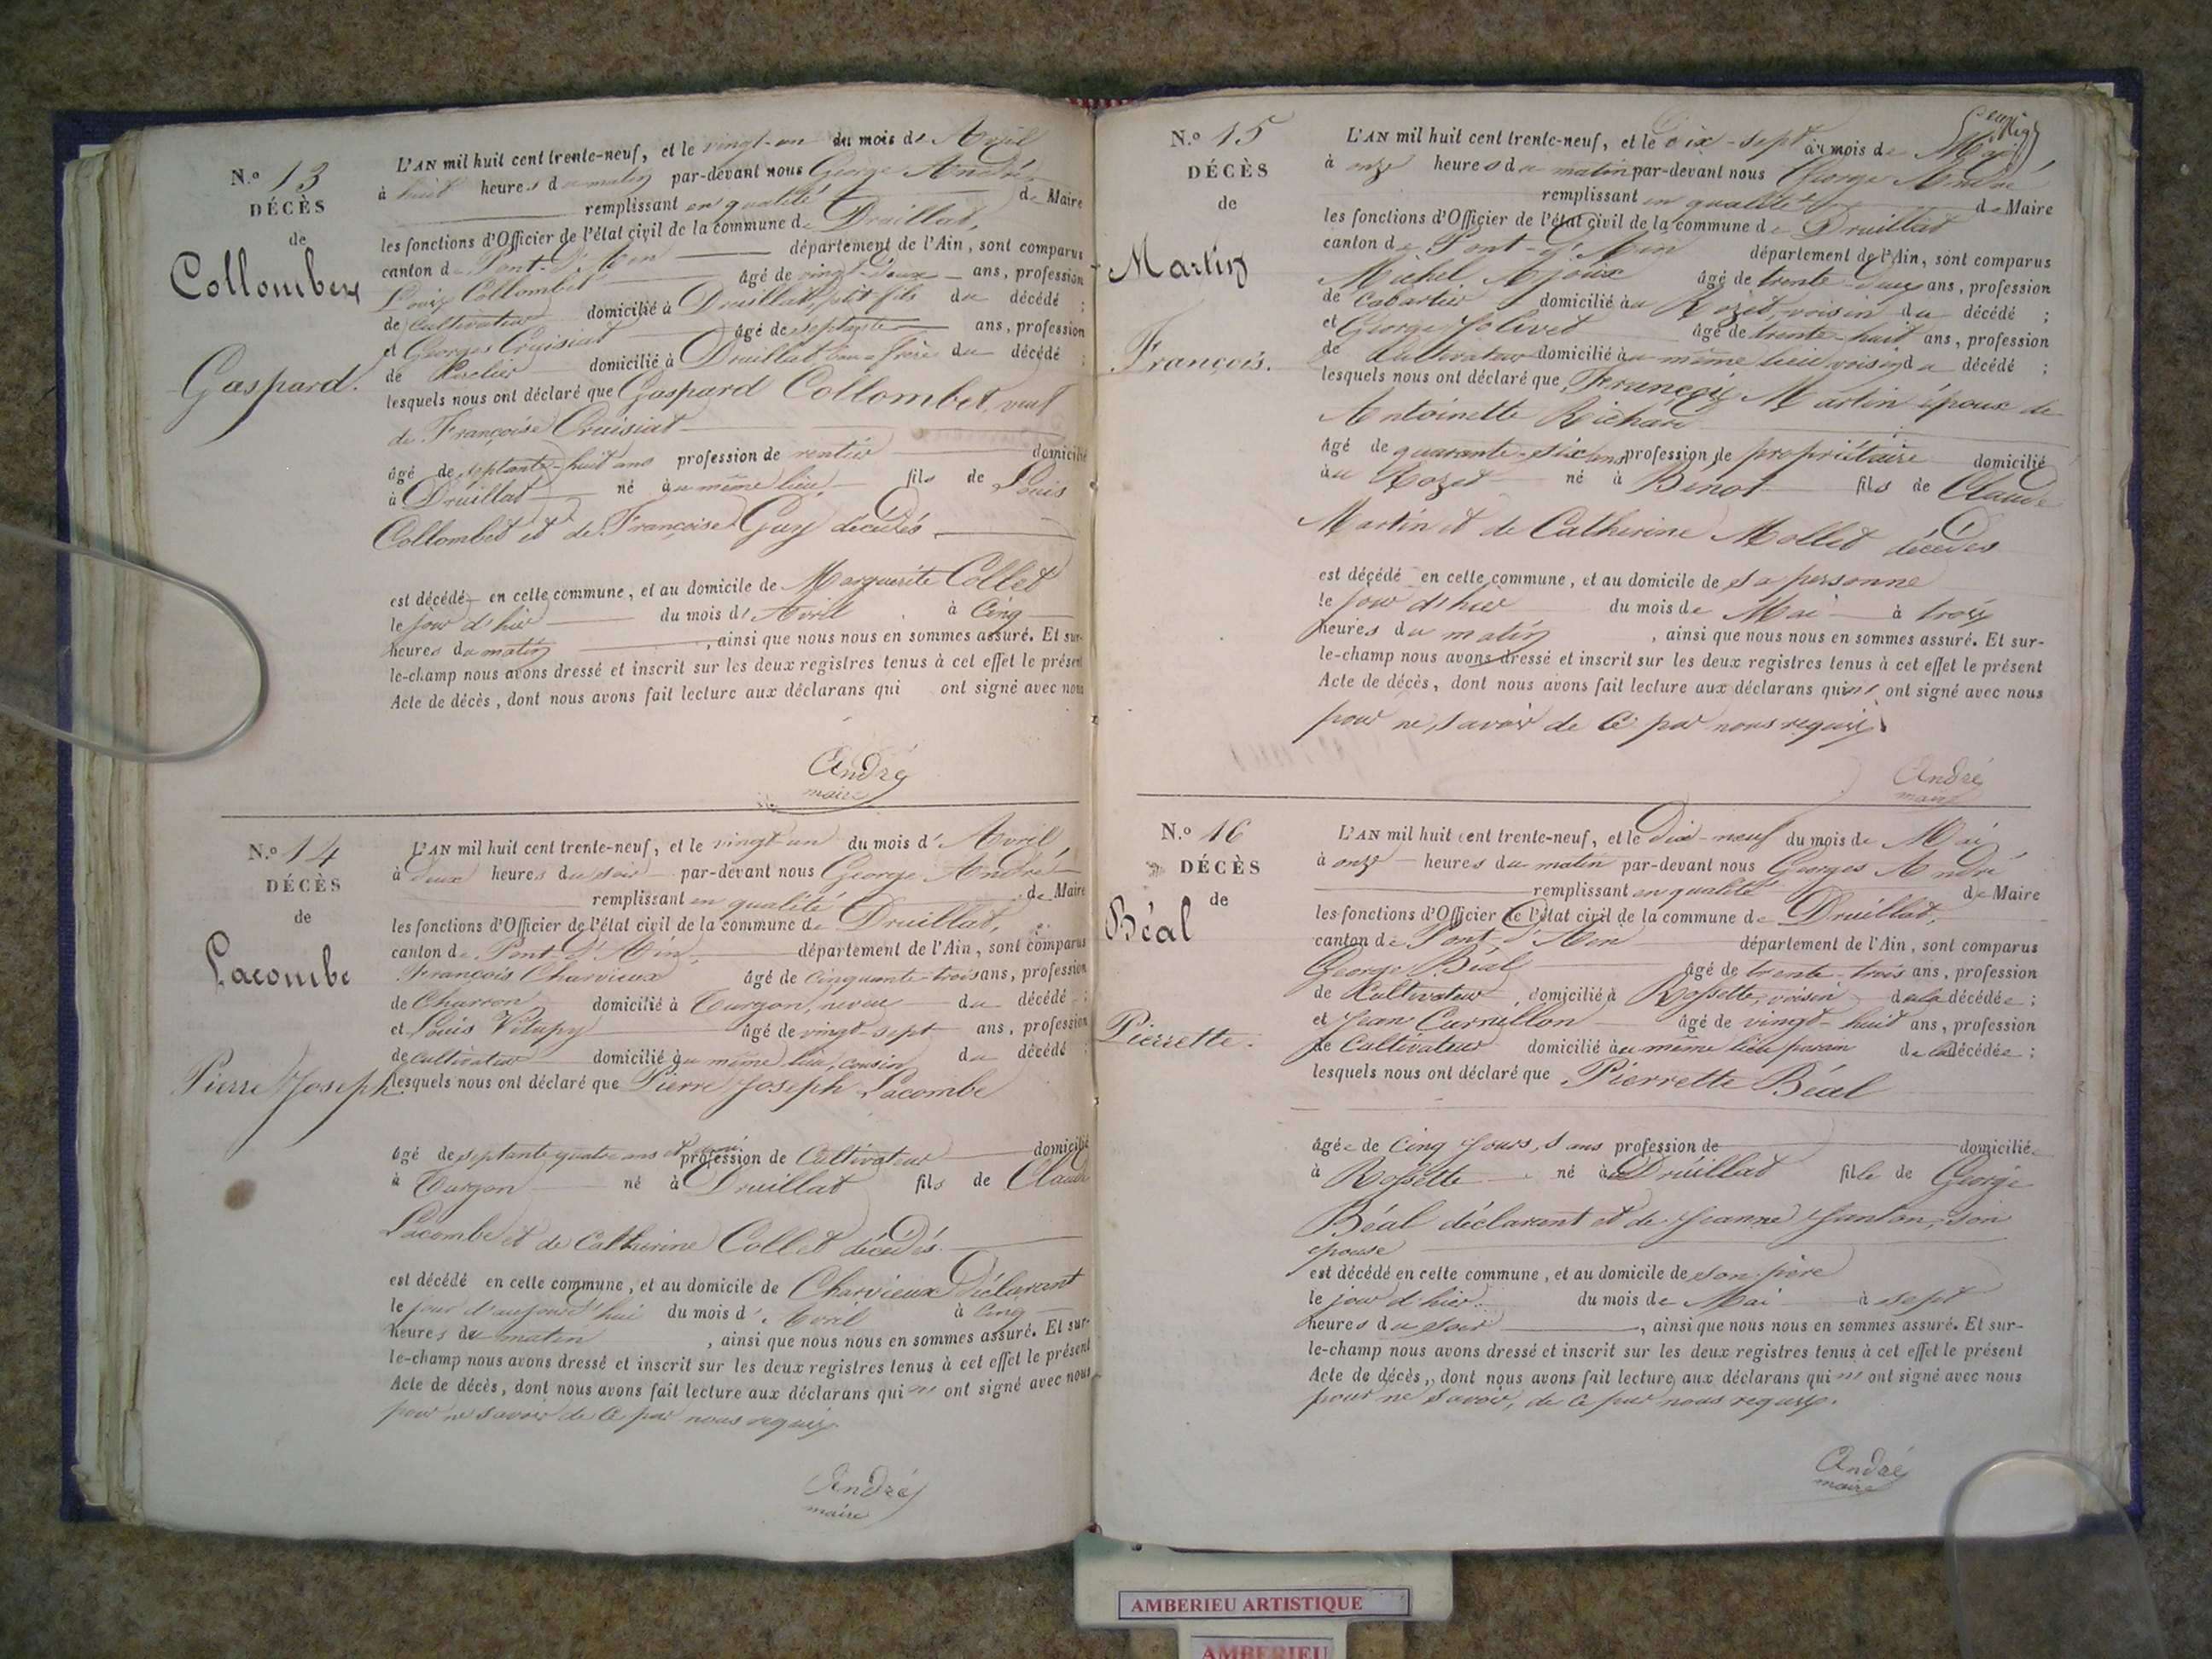 N.º 13
DÉCÈS
de
Collombet
Gaspard.
L'AN mil huit cent trente-neuf, et le vingt-un du mois d'Avril
à huit heures du matin par-devant nous George André
remplissant en qualité de Maire
les fonctions d'Officier de l'état civil de la commune de Druillat,
canton de Pont-d'Ain département de l'Ain, sont comparus
Louis Collombet âgé de vingt-deux ans, profession
de Cultivateur domicilié à Druillat, petit fils du décédé ;
et Georges Cruisiat âgé de septante ans, profession
de domicilié à Druillat beau frère du décédé ;
lesquels nous ont déclaré que Gaspard Collombet, veuf
de Françoise Cruisiat
âgé de septante-huit ans profession de rentier domicilié
à Druillat né au même lieu, fils de Louis
Collombet et de Françoise Guy décédés
est décédé en cette commune, et au domicile de Marguerite Collet
le jour d'hier du mois d'Avril à Cinq
heures du matin , ainsi que nous nous en sommes assuré. Et sur-
le-champ nous avons dressé et inscrit sur les deux registres tenus à cet effet le présent
Acte de décès, dont nous avons fait lecture aux déclarans qui ont signé avec nous
André
maire
N.º 14
DÉCÈS
de
Lacombe
Pierre Joseph.
L'AN mil huit cent trente-neuf, et le vingt-un du mois d'Avril,
à deux heures du soir par-devant nous George André
remplissant en qualité de Maire
les fonctions d'Officier de l'état civil de la commune de Druillat,
canton de Pont-d'Ain, département de l'Ain, sont comparus
François Charvieux âgé de Cinquante-trois ans, profession
de Charron domicilié à Turgon, neveu du décédé ;
et Louis Vitupy âgé de vingt-sept ans, profession
de cultivateur domicilié au même lieu, cousin du décédé
lesquels nous ont déclaré que Pierre Joseph Lacombe
âgé de septante quatre ans et profession de Cultivateur domicilié
à Turgon né à Druillat fils de Claude
Lacombe et de Catherine Collet décédés.
est décédé en cette commune, et au domicile de Charvieux Déclarant
le jour d'aujourd'hui du mois d'Avril à Cinq
heures du matin , ainsi que nous nous en sommes assuré. Et sur-
le-champ nous avons dressé et inscrit sur les deux registres tenus à cet effet le présent
Acte de décès, dont nous avons fait lecture aux déclarans qui n'ont signé avec nous
pour ne savoir de ce par nous requis.
André
maire
N.º 15
DÉCÈS
de
Martin
François.
L'AN mil huit cent trente-neuf, et le dix-sept du mois de Mai,
à onze heures du matin par-devant nous George André
remplissant en qualité de Maire
les fonctions d'Officier de l'état civil de la commune de Druillat
canton de Pont-d'Ain département de l'Ain, sont comparus
Michel âgé de trente-deux ans, profession
de Cabartier domicilié au Rozet, voisin du décédé ;
et George Jolivet âgé de trente-huit ans, profession
de Cultivateur domicilié au même lieu voisin du décédé ;
lesquels nous ont déclaré que François Martin époux de
Antoinette Richard
âgé de quarante-six ans profession de propriétaire domicilié
au Rozet né à Benot fils de Claude
Martin et de Catherine Mollet décédés
est décédé en cette commune, et au domicile de sa personne
le jour d'hier du mois de Mai à trois
heures du matin , ainsi que nous nous en sommes assuré. Et sur-
le-champ nous avons dressé et inscrit sur les deux registres tenus à cet effet le présent
Acte de décès, dont nous avons fait lecture aux déclarans qui n'ont signé avec nous
pour ne savoir de ce par nous requis.
André
maire
N.º 16
DÉCÈS
de
Béal
Pierrette.
L'AN mil huit cent trente-neuf, et le dix-neuf du mois de Mai,
à onze heures du matin par-devant nous Georges André
remplissant en qualité de Maire
les fonctions d'Officier de l'état civil de la commune de Druillat,
canton de Pont-d'Ain département de l'Ain, sont comparus
George Béal âgé de trente-trois ans, profession
de Cultivateur, domicilié à Rossette, voisin de la décédée ;
et Jean Currullon âgé de vingt-huit ans, profession
de Cultivateur domicilié au même lieu parain de la décédée ;
lesquels nous ont déclaré que Pierrette Béal
âgée de Cinq Jours, sans profession de domiciliée
à Rossette né à Druillat fille de George
Béal déclarant et de Jeanne Janton, son
épouse
est décédé en cette commune, et au domicile de son père
le jour d'hier du mois de Mai à sept
heures du soir , ainsi que nous nous en sommes assuré. Et sur-
le-champ nous avons dressé et inscrit sur les deux registres tenus à cet effet le présent
Acte de décès, dont nous avons fait lecture aux déclarans qui n'ont signé avec nous
pour ne savoir, de ce par nous requis.
André
maire
AMBERIEU ARTISTIQUE
AMBERIEU